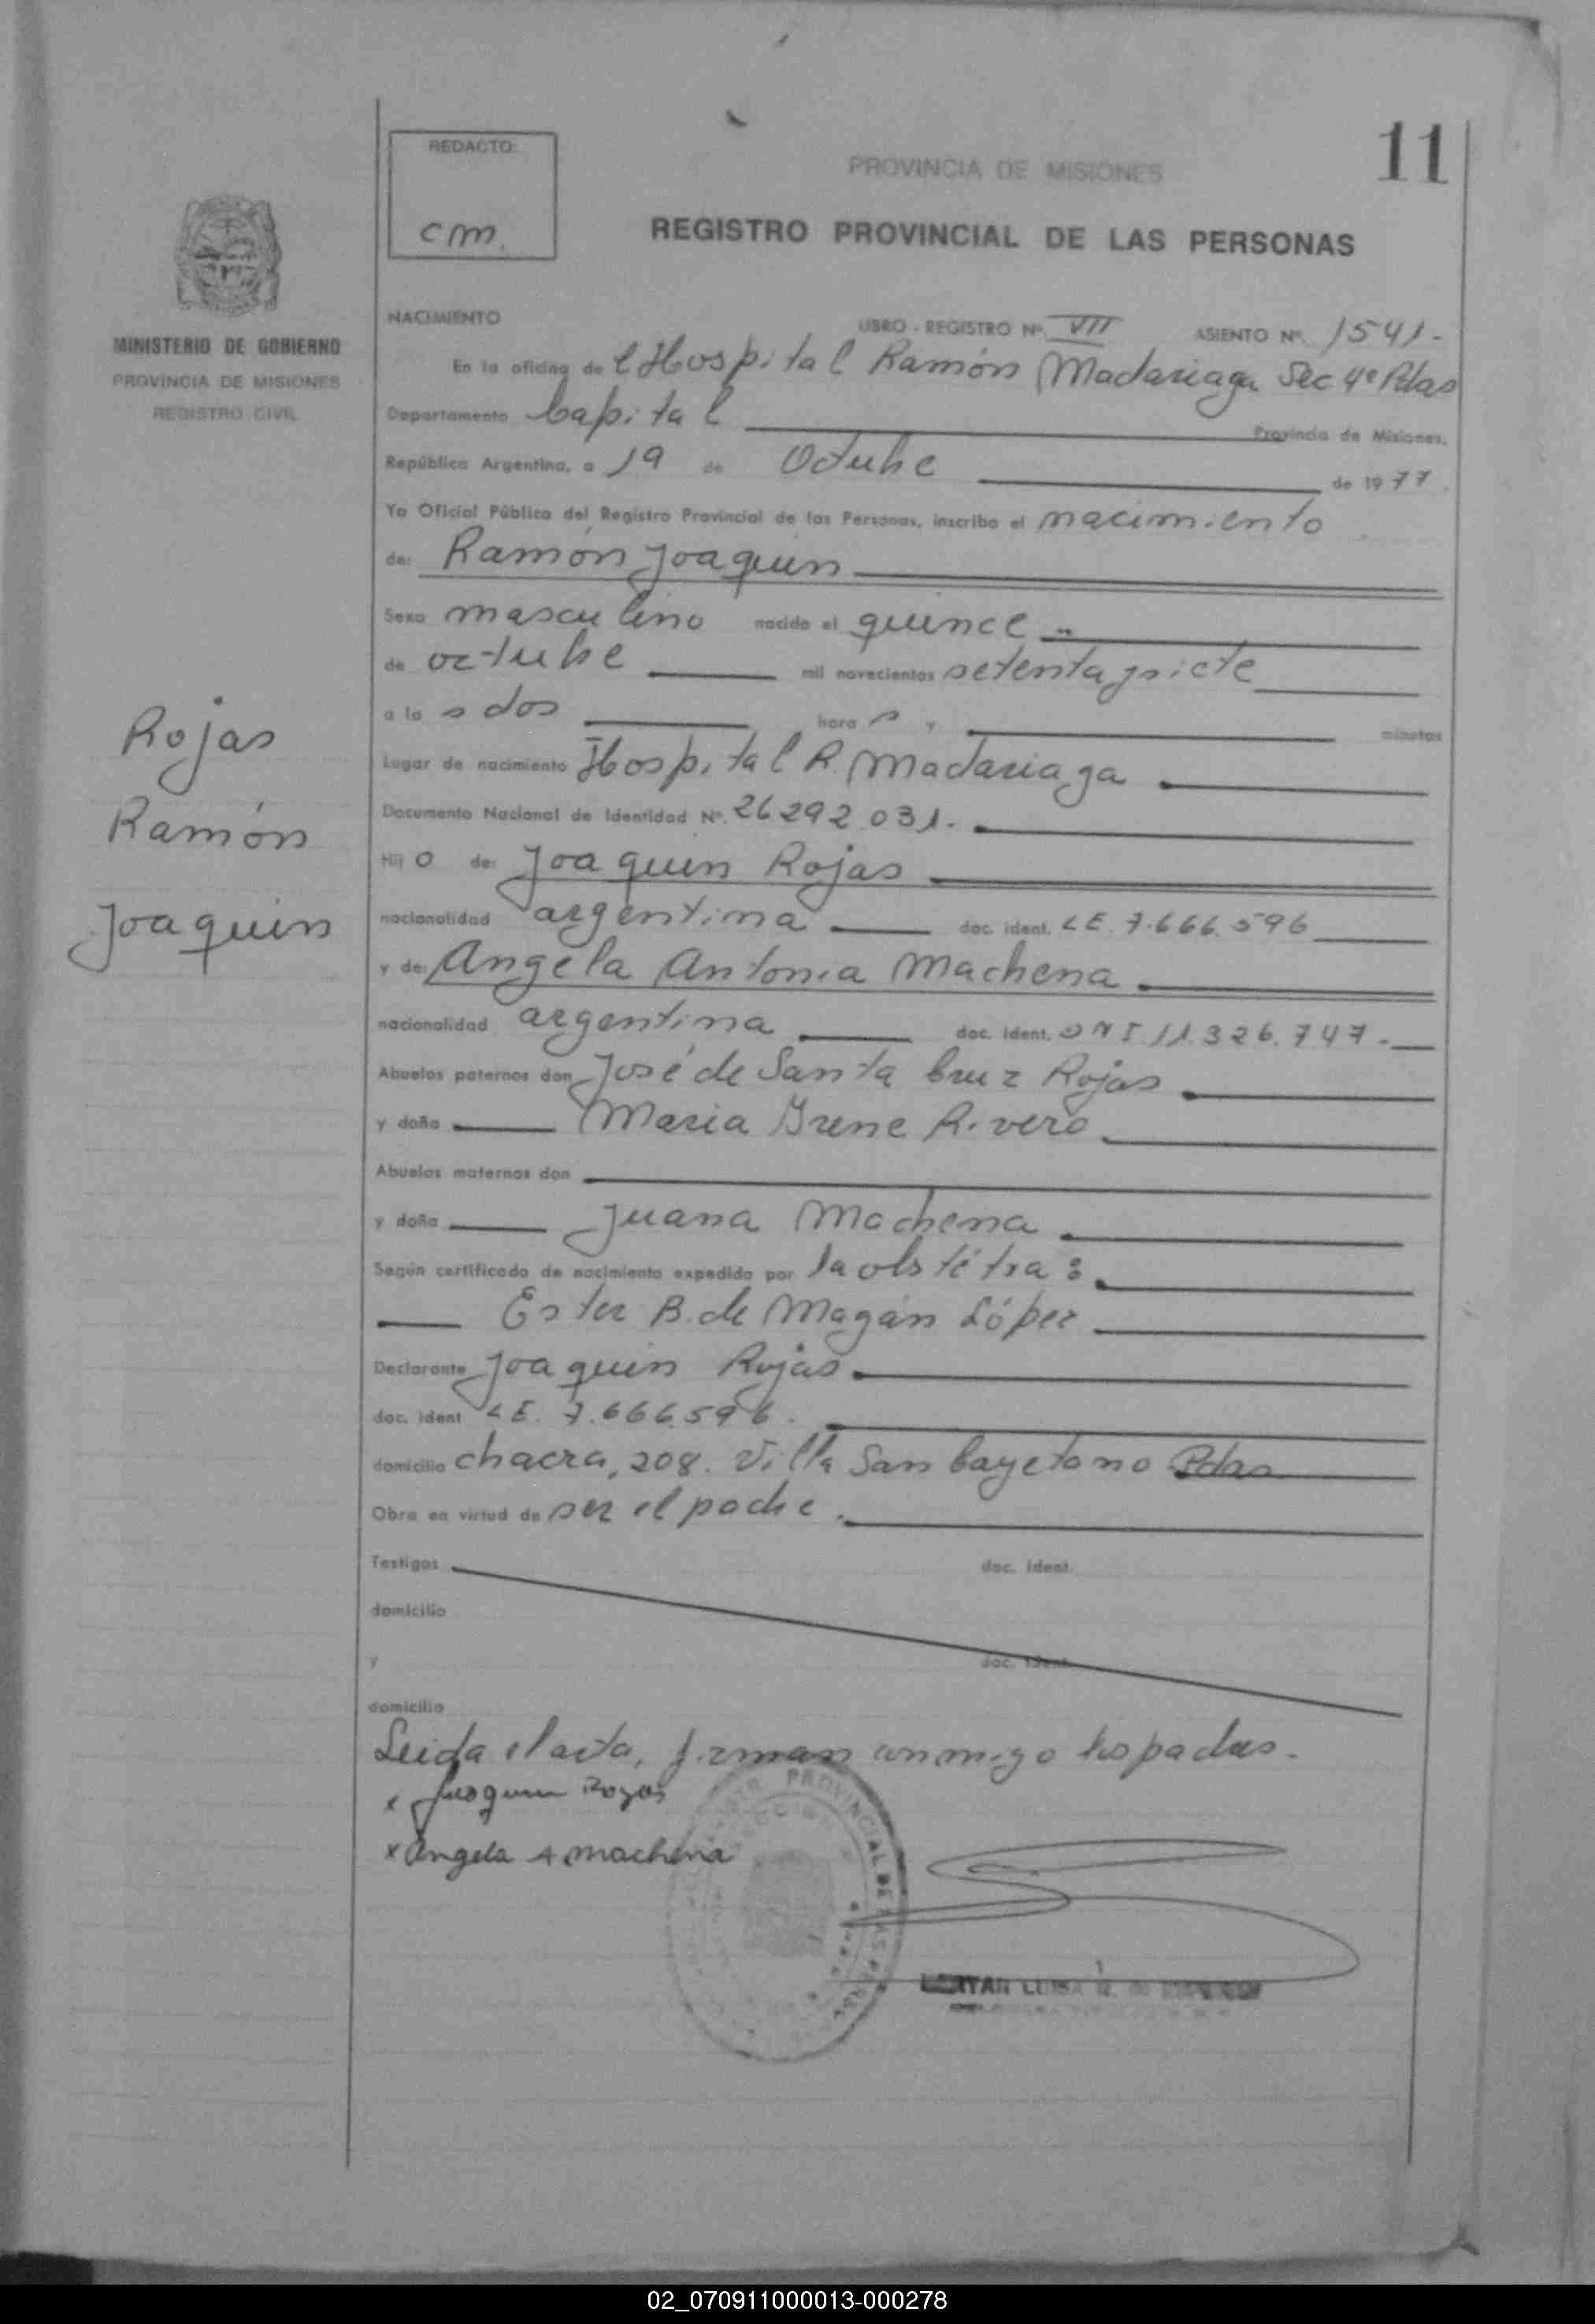 11
REDACTO:
cm.
PROVINCIA DE MISIONES
REGISTRO PROVINCIAL DE LAS PERSONAS
MINISTERIO DE GOBIERNO
PROVINCIA DE MISIONES
REGISTRO CIVIL
Rojas
Ramón
Joaquin
NACIMIENTO LIBRO - REGISTRO Nº. VII ASIENTO Nº. 1541-
En la oficina de l Hospital Ramón Madariaga Sec 4º Pdas
Departamento Capital Provincia de Misiones,
República Argentina, a 19 de Octubre de 1977.
Yo Oficial Público del Registro Provincial de las Personas, inscribo el nacimiento
de: Ramón Joaquin
Sexo masculino nacido el quince
de octubre mil novecientos setenta y siete
a la s dos hora s y minutos
Lugar de nacimiento Hospital R. Madariaga
Documento Nacional de Identidad Nº. 26 292 031.-
Hij o de: Joaquin Rojas
nacionalidad argentina doc. ident. LE. 7.666.596
y de: Angela Antonia Machena
nacionalidad argentina doc. ident. DNI.11.326.747.-
Abuelos paternos don José de Santa Cruz Rojas
y doña Maria Irene Rivero
Abuelos maternos don
y doña Juana Machena
Según certificado de nacimiento expedido por la obstétra :
Ester B. de Magán López
Declarante Joaquin Rojas
doc. ident LE. 7.666.596.
domicilio chacra, 208. Villa San Cayetano Pdas
Obra en virtud de ser el padre.
Testigos doc. ident.
domicilio
y doc. ident.
domicilio
Leida el acta, firman conmigo los padres.
x Joaquin Rojas
x Angela A Machena
PROVINCIAL DE LAS
LUISA
02_070911000013-000278